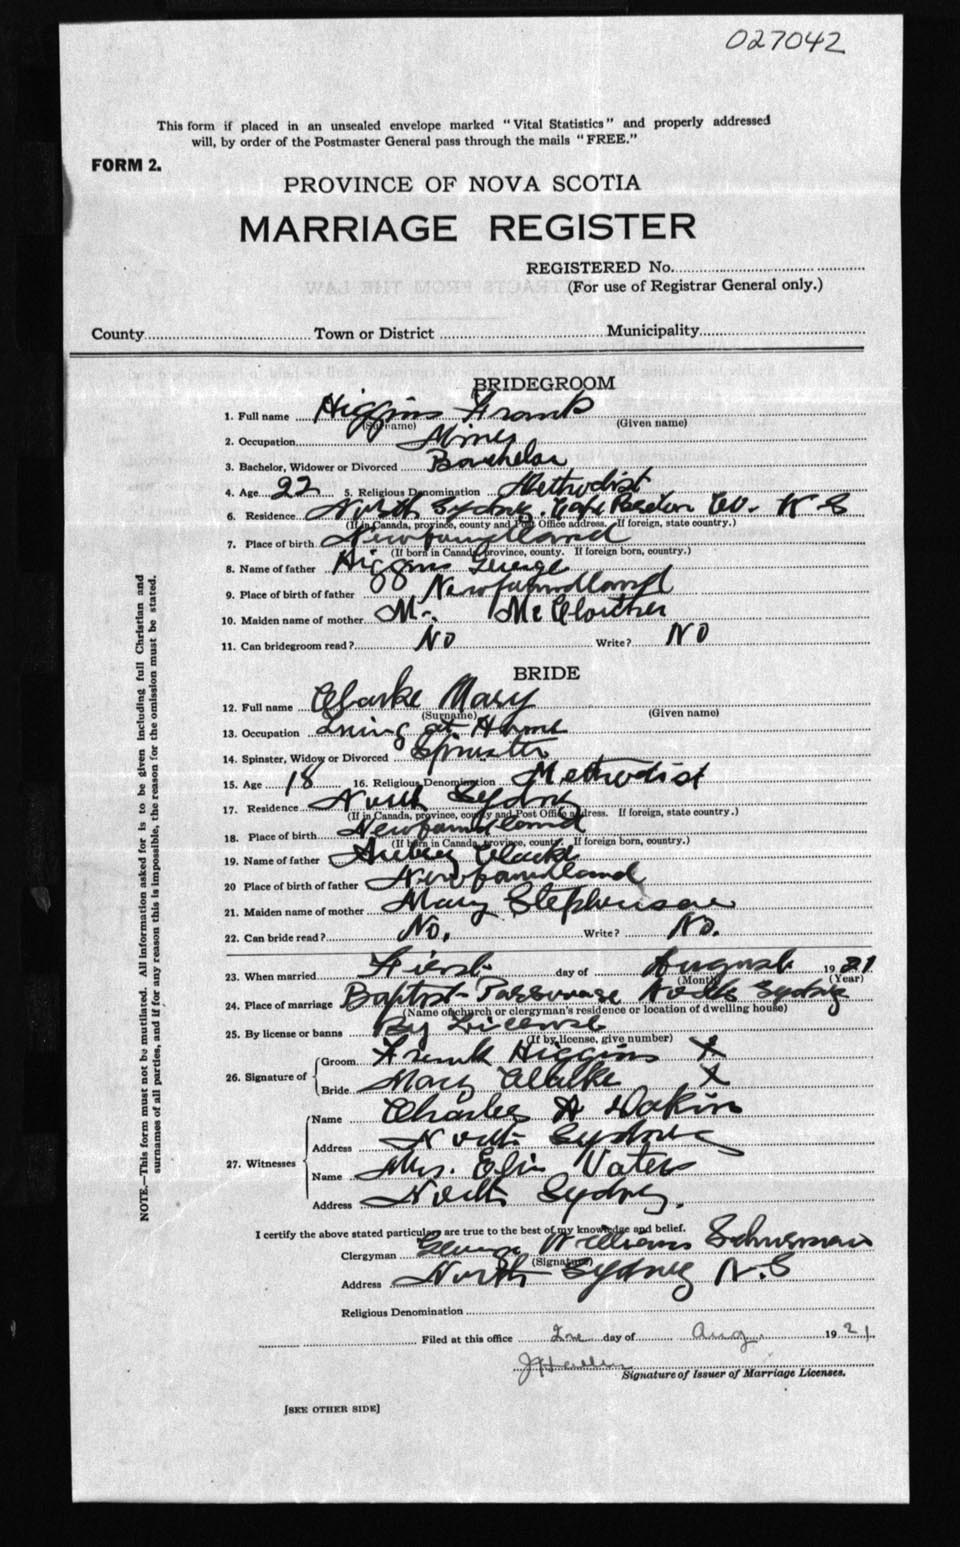 027042
This form if placed in an unsealed envelope marked "Vital Statistics" and properly addressed
will, by order of the Postmaster General pass through the mails "FREE."
FORM 2.
PROVINCE OF NOVA SCOTIA
MARRIAGE REGISTER
REGISTERED No.
(For use of Registrar General only.)
County Town or District Municipality
BRIDEGROOM
1. Full name Higgins Frank
(Surname) (Given name)
2. Occupation Miner
3. Bachelor, Widower or Divorced Bachelor
4. Age 22 5. Religious Denomination Methodist
6. Residence North Sydney Cape Breton Co. N-S
(If in Canada, province, county and Post Office address. If foreign, state country.)
7. Place of birth Newfoundland
(If born in Canada, province, county. If foreign born, country.)
8. Name of father Higgins George
9. Place of birth of father Newfoundland
10. Maiden name of mother
11. Can bridegroom read? No Write? No
BRIDE
12. Full name Clarke Mary
(Surname) (Given name)
13. Occupation Living at Home
14. Spinster, Widow or Divorced Spinster
15. Age 18 16. Religious Denomination Methodist
17. Residence North Sydney
(If in Canada, province, county and Post Office address. If foreign, state country.)
18. Place of birth Newfoundland
(If born in Canada, province, county. If foreign born, country.)
19. Name of father Clarke
20 Place of birth of father Newfoundland
21. Maiden name of mother Mary Stephenson
22. Can bride read? No. Write? No.
23. When married First day of August 1921
(Month) (Year)
24. Place of marriage Baptist Parsonage North Sydney
(Name of church or clergyman's residence or location of dwelling house)
25. By license or banns By License
(If by license, give number)
26. Signature of Groom Frank Higgins X
Bride Mary Clarke X
27. Witnesses Name Charles A Dakin
Address North Sydney
Name Mrs. Vaters
Address North Sydney.
I certify the above stated particulars are true to the best of my knowledge and belief.
Clergyman George Williams Schurman
(Signature)
Address North Sydney N.S
Religious Denomination
Filed at this office day of Aug. 1921
Signature of Issuer of Marriage Licenses.
[SEE OTHER SIDE]
NOTE.—This form must not be mutilated. All information asked for is to be given including full Christian and
surnames of all parties, and if for any reason this is impossible, the reason for the omission must be stated.